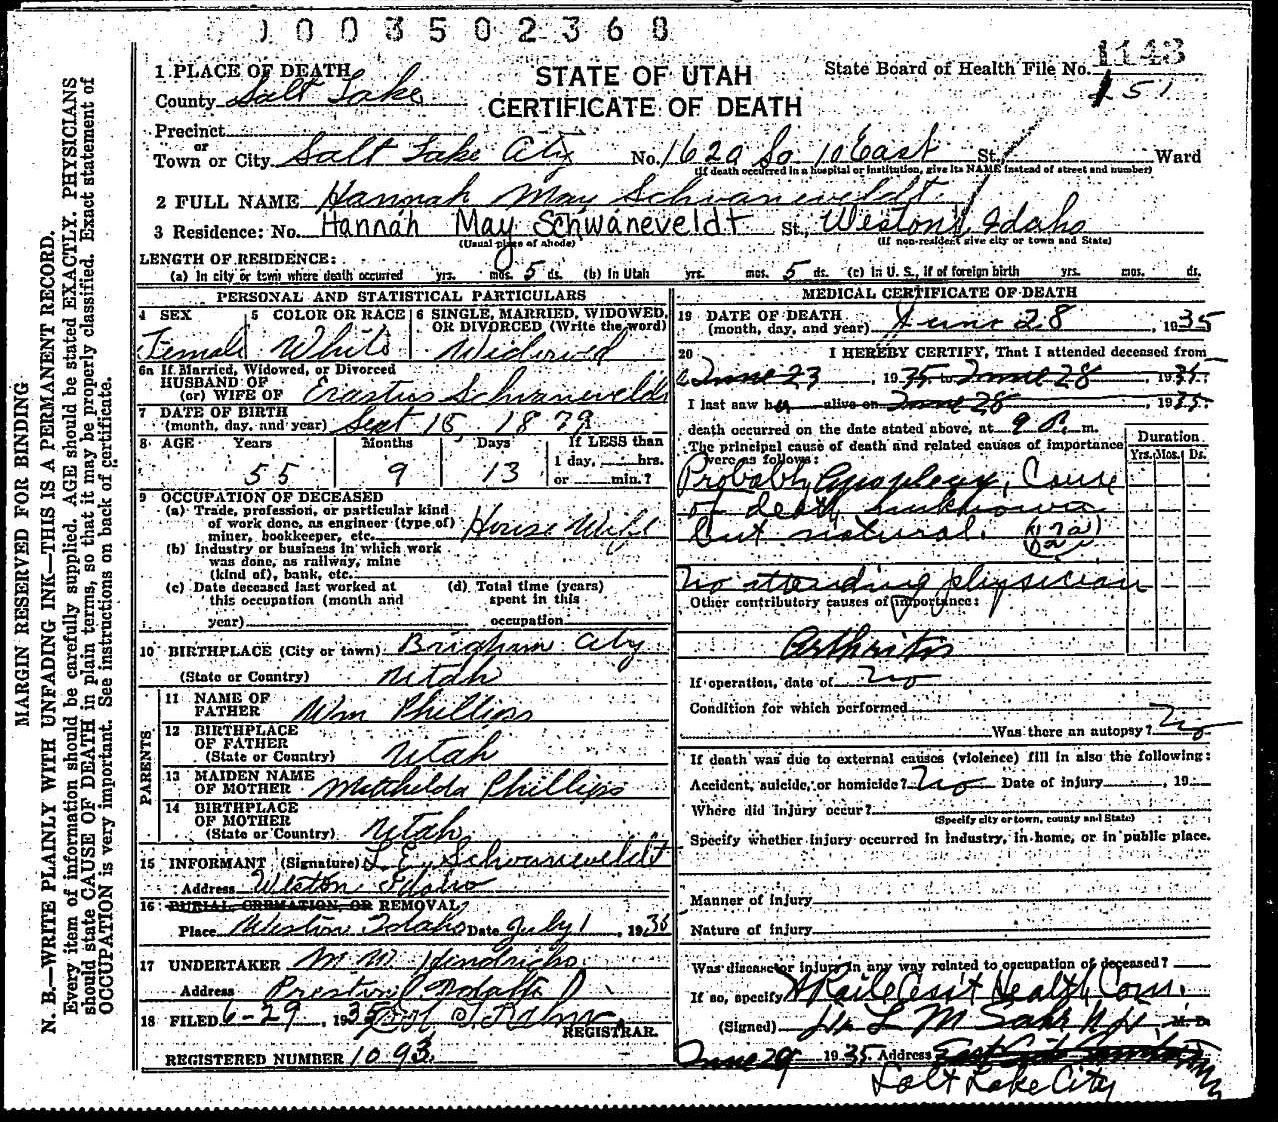 0 0 0 3 5 0 2 3 6 8
1143
151
STATE OF UTAH
CERTIFICATE OF DEATH
State Board of Health File No.
1 PLACE OF DEATH
County Salt Lake
Precinct
or
Town or City Salt Lake City No. 1620 So 10 East St. Ward
(If death occurred in a hospital or institution, give its NAME instead of street and number)
2 FULL NAME Hannah May Schvaneveldt
3 Residence: No. Hannah May Schwaneveldt St., Weston, Idaho
(Usual place of abode) (If non-resident give city or town and State)
LENGTH OF RESIDENCE:
(a) In city or town where death occurred yrs. mos. 5 ds. (b) In Utah yrs. mos. 5 ds. (c) In U. S., if of foreign birth yrs. mos. ds.
PERSONAL AND STATISTICAL PARTICULARS
4 SEX 5 COLOR OR RACE 6 SINGLE, MARRIED, WIDOWED, OR DIVORCED (Write the word)
Female White Widowed
6a If Married, Widowed, or Divorced
HUSBAND OF
(or) WIFE OF Erastus Schvaneveldt
7 DATE OF BIRTH
(month, day, and year) Sept 15 1879
8 AGE Years Months Days If LESS than
55 9 13 1 day, hrs.
or min.?
9 OCCUPATION OF DECEASED
(a) Trade, profession, or particular kind
of work done, as engineer (type of)
miner, bookkeeper, etc. House Wife
(b) Industry or business in which work
was done, as railway, mine
(kind of), bank, etc.
(c) Date deceased last worked at (d) Total time (years)
this occupation (month and spent in this
year) occupation
10 BIRTHPLACE (City or town) Brigham City
(State or Country) Utah
PARENTS
11 NAME OF
FATHER Wm Phillips
12 BIRTHPLACE
OF FATHER
(State or Country) Utah
13 MAIDEN NAME
OF MOTHER Methelda Phillips
14 BIRTHPLACE
OF MOTHER
(State or Country) Utah
15 INFORMANT (Signature) L. E. Schvaneveldt
Address Weston Idaho
16 BURIAL, CREMATION, OR REMOVAL,
Place Weston Idaho Date July 1, 1935
17 UNDERTAKER Hendricks
Address Preston Idaho
18 FILED 6-29, 1935
REGISTRAR.
REGISTERED NUMBER 1093
MEDICAL CERTIFICATE OF DEATH
19 DATE OF DEATH
(month, day, and year) June 28, 1935
20 I HEREBY CERTIFY, That I attended deceased from
June 23, 1935 to June 28, 1935.
I last saw her alive on June 28, 1935.
death occurred on the date stated above, at 9 P. m.
The principal cause of death and related causes of importance
were as follows:
Duration
Yrs. Mos. Ds.
Probably Apoplexy, Cause
of death unknown
but natural. (82a)
No attending physician
Other contributory causes of importance:
Arthritis
If operation, date of No
Condition for which performed
Was there an autopsy? No
If death was due to external causes (violence) fill in also the following:
Accident, suicide, or homicide? No Date of injury, 19
Where did injury occur?
(Specify city or town, county and State)
Specify whether injury occurred in industry, in home, or in public place.
Manner of injury
Nature of injury
Was disease or injury in any way related to occupation of deceased?
If so, specify Health Com.
(Signed) L M M. D.
June 29 1935. Address
Salt Lake City
MARGIN RESERVED FOR BINDING
N. B.—WRITE PLAINLY WITH UNFADING INK—THIS IS A PERMANENT RECORD.
Every item of information should be carefully supplied. AGE should be stated EXACTLY. PHYSICIANS
should state CAUSE OF DEATH in plain terms, so that it may be properly classified. Exact statement of
OCCUPATION is very important. See instructions on back of certificate.